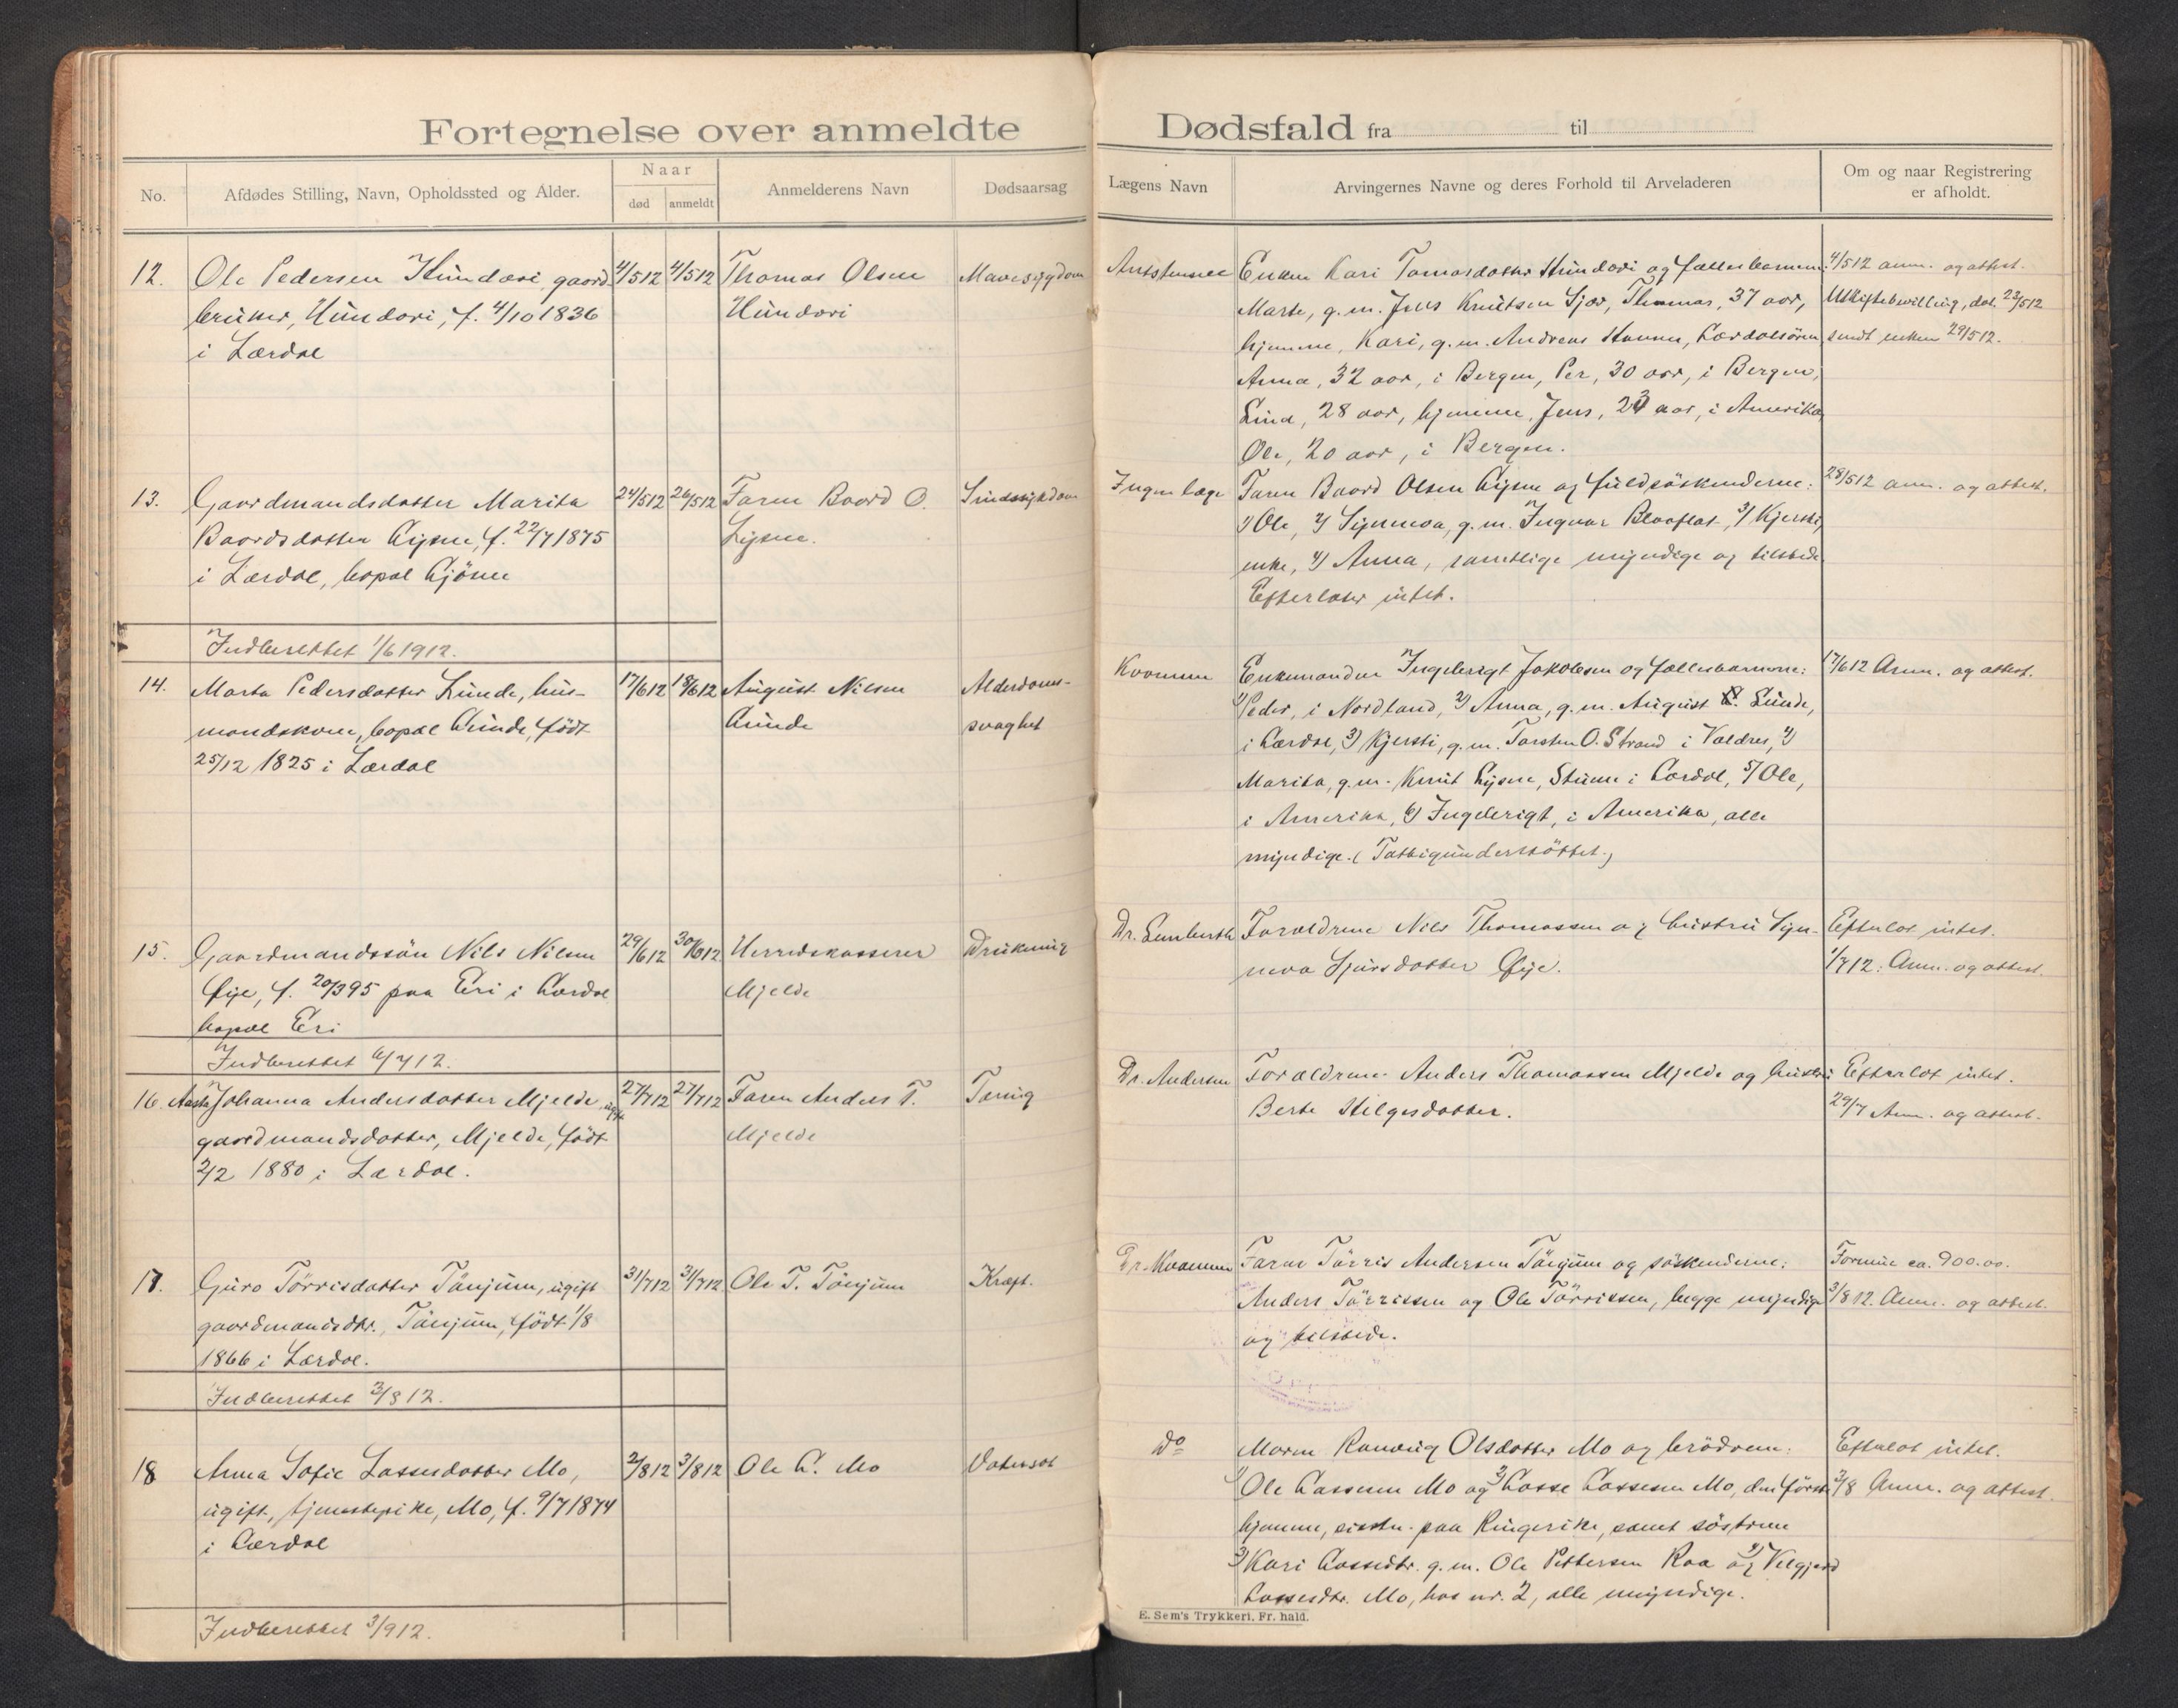 Fortegnelse over anmeldte Dødsfald fra til
No.
Afdødes Stilling, Navn, Opholdssted og Alder.
Naar
død
anmeldt
Anmelderens Navn
Dødsaarsag
Lægens Navn
Arvingernes Navne og deres Forhold til Arveladeren
Om og naar Registrering
er afholdt.
12. Ole Pedersen gaard-
bruker, f. 4/10 1836
i Lærdal
4/5 12
4/5 12
Thomas Olsen
Mavesygdom
Enken Kari Tomasdatter og fællesbarnene:
Marte, g. m. Jens Knutsen Thomas, 37 aar,
hjemme, Kari, g. m. Andreas Lærdalsören,
Anna, 32 aar, i Bergen, Per, 30 aar, i Bergen,
28 aar, hjemme, Jens, 23 aar, i Amerika,
Ole, 20 aar, i Bergen.
4/5 12 anm. og attest.
Uskiftebevilling, dat. 23/5 12
sendt enken 29/5 12.
13. Gaardmandsdatter Marita
Baardsdatter Lysne, f. 22/7 1875
i Lærdal, bopæl Ljösne
24/5 12
26/5 12
Faren Baard O.
Lysne.
Sindssykdom
Ingen læge
Faren Baard Olsen Lysne og fuldsöskenderne:
1) Ole, 2) Synneva, g. m. Ingvar Blaaflat, 3) Kjersti,
enke, 4) Anna, samtlige myndige og tilstede.
Efterlater intet.
28/5 12 anm. og attest.
Indberettet 1/6 1912.
14. Marta Pedersdatter Lunde, hus-
mandskone, bopæl Lunde, født
25/12 1825 i Lærdal
17/6 12
18/6 12
August Nilsen
Lunde
Alderdoms-
svaghet
Kvamme
Enkemanden Ingebrigt Jakobsen og fællesbarnene:
1) Peder, i Nordland, 2) Anna, g. m. August Lunde,
i Lærdal, 3) Kjersti, g. m. Torsten O. Strand i Valdres, 4)
Marita, g. m. Knut Lysne, Stuene i Lærdal, 5) Ole,
i Amerika, 6) Ingebrigt, i Amerika, alle
myndige. (Fattigunderstöttet.)
17/6 12 Anm. og attest.
15. Gaardmandssön Nils Nilsen
Øye, f. 20/3 95 paa Eri i Lærdal
bopæl Eri
29/6 12
30/6 12
Herredskasserer
Mjelde
Drukning
Forældrene Nils Thomassen og hustru Syn-
neva Sjursdatter Øye.
Efterlot intet.
1/7 12. Anm. og attest.
Indberettet 6/7 12.
16. Aasta Johanna Andersdatter Mjelde, ugift
gaardmandsdatter, Mjelde, født
2/2 1880 i Lærdal.
27/7 12
27/7 12
Faren Anders T.
Mjelde
Tæring
Dr. Andersen
Forældrene Anders Thomassen Mjelde og hustru
Berte Helgesdatter.
Efterlot intet.
29/7 Anm. og attest.
17. Guro Törrisdatter Tönjum, ugift
gaardmandsdtr., Tönjum, født 1/8
1866 i Lærdal.
31/7 12
31/7 12
Ole T. Tönjum
Kræft.
Dr. Kvamme
Faren Törris Andersen Tönjum og söskenderne:
Anders Törrissen og Ole Törrissen, begge myndige
og tilstede.
Formue ca. 900.00.
3/8 12. Anm. og attest.
Indberettet 3/8 12.
18 Anna Sofie Lassesdatter Mo,
ugift, tjenestepike, Mo, f. 9/7 1874
i Lærdal
2/8 12
3/8 12
Ole L. Mo
Vatersot
Do
Moren Ranveig Olsdatter Mo og brödrene:
1) Ole Lassesen Mo og 2) Lasse Lassesen Mo, den förste
hjemme, sidstn. paa Ringerike, samt söstrene
3) Kari Lassesdtr. g. m. Ole Pettersen Raa og 4) Velgjerd
Lassesdtr. Mo, hos nr. 2, alle myndige.
Efterlot intet.
3/8 Anm. og attest.
Indberettet 3/9 12.
E. Sem's Trykkeri, Fr. hald.